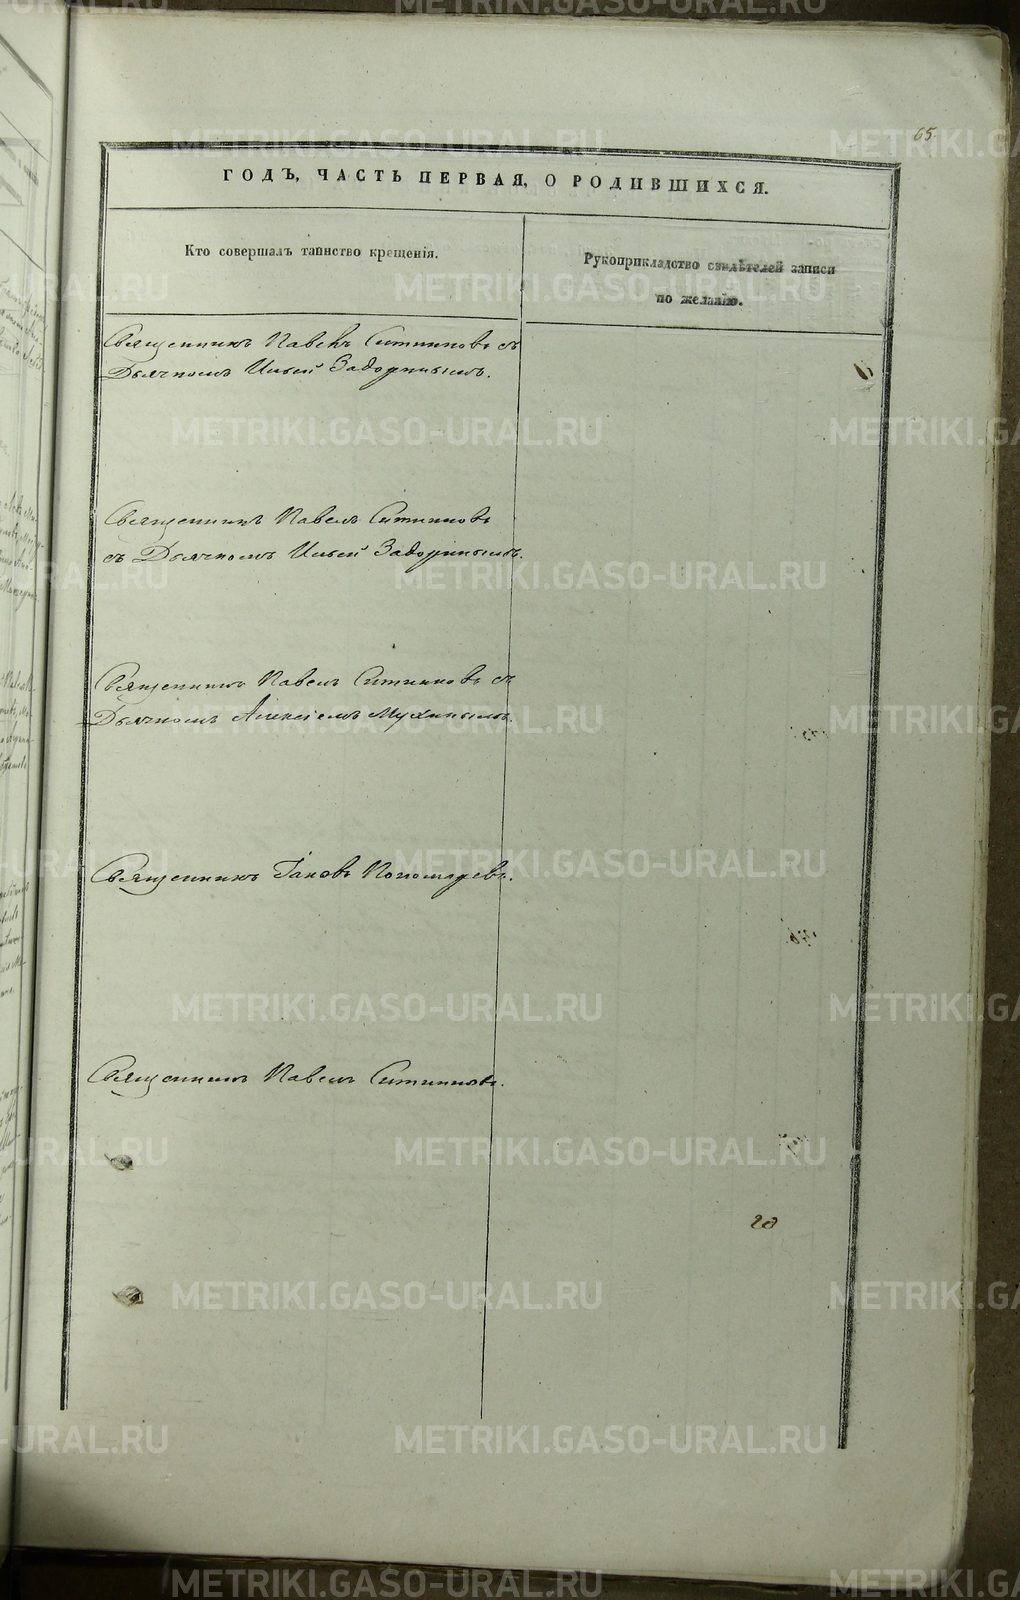 65.
ГОДЪ, ЧАСТЬ ПЕРВАЯ, О РОДИВШИХСЯ.
Кто совершалъ таинство крещенія.
Рукоприкладство свидѣтелей записи
по желанію.
Священникъ Павелъ Ситниковъ съ
Дьячкомъ Ильей Задоринымъ.
Священникъ Павелъ Ситниковъ
съ Дьячкомъ Ильей Задоринымъ.
Священникъ Павелъ Ситниковъ съ
Дьячкомъ Алексіемъ Мухинымъ.
Священникъ Іаковъ Пономаревъ.
Священникъ Павелъ Ситниковъ.
20
METRIKI.GASO-URAL.RU